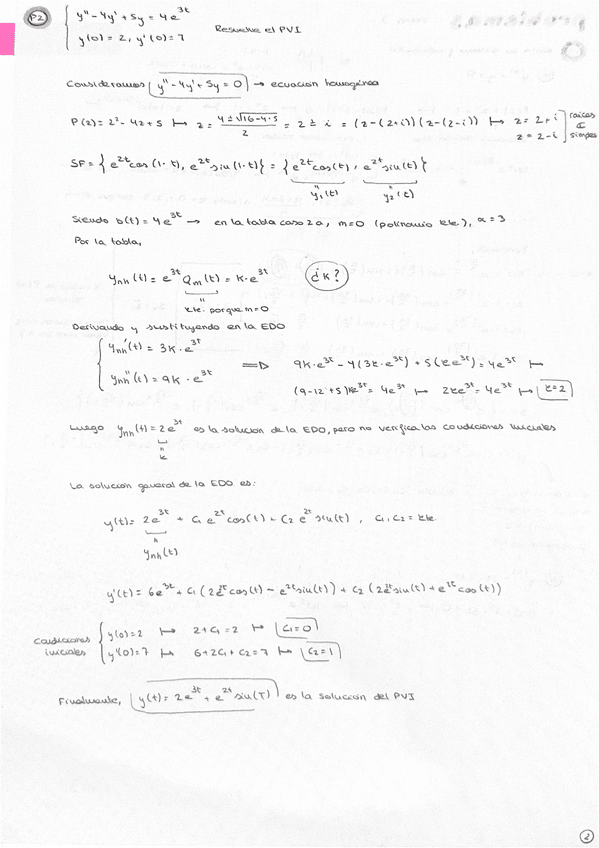 P2 { y'' - 4y' + 5y = 4e^{3t}
y(0) = 2, y'(0) = 7 Resuelve el PVI
Consideramos y'' - 4y' + 5y = 0 → ecuacion homogénea
P(z) = z² - 4z + 5 ↦ z = (4 ± √(16 - 4·5))/2 = 2 ± i = (z - (2+i))(z - (2-i)) ↦ z = 2+i z = 2-i ] raices simples
SF = { e^{2t} cos(1·t), e^{2t} sin(1·t) } = { e^{2t} cos(t), e^{2t} sin(t) }
y₁(t) y₂(t)
Siendo b(t) = 4e^{3t} → en la tabla caso 2a, m=0 (polinomio kte.), α = 3
Por la tabla,
y_{nh}(t) = e^{3t} Q_m(t) = K·e^{3t} ¿K?
kte. porque m=0
Derivando y sustituyendo en la EDO
{ y_{nh}'(t) = 3K·e^{3t}
y_{nh}''(t) = 9K·e^{3t} ⟹ 9K·e^{3t} - 4(3k·e^{3t}) + 5(ke^{3t}) = 4e^{3t} ↦
(9-12+5)ke^{3t} = 4e^{3t} ↦ 2ke^{3t} = 4e^{3t} ↦ k=2
Luego y_{nh}(t) = 2e^{3t} es la solucion de la EDO, pero no verifica las condiciones iniciales
k
La solucion general de la EDO es:
y(t) = 2e^{3t} + C₁ e^{2t} cos(t) + C₂ e^{2t} sin(t) , C₁, C₂ = kte.
y_{nh}(t)
y'(t) = 6e^{3t} + C₁ (2e^{2t} cos(t) - e^{2t} sin(t)) + C₂ (2e^{2t} sin(t) + e^{2t} cos(t))
condiciones iniciales { y(0)=2 ↦ 2+C₁ = 2 ↦ C₁=0
y'(0)=7 ↦ 6+2C₁+C₂ = 7 ↦ C₂=1
Finalmente, y(t) = 2e^{3t} + e^{2t} sin(T) es la solucion del PVI
2